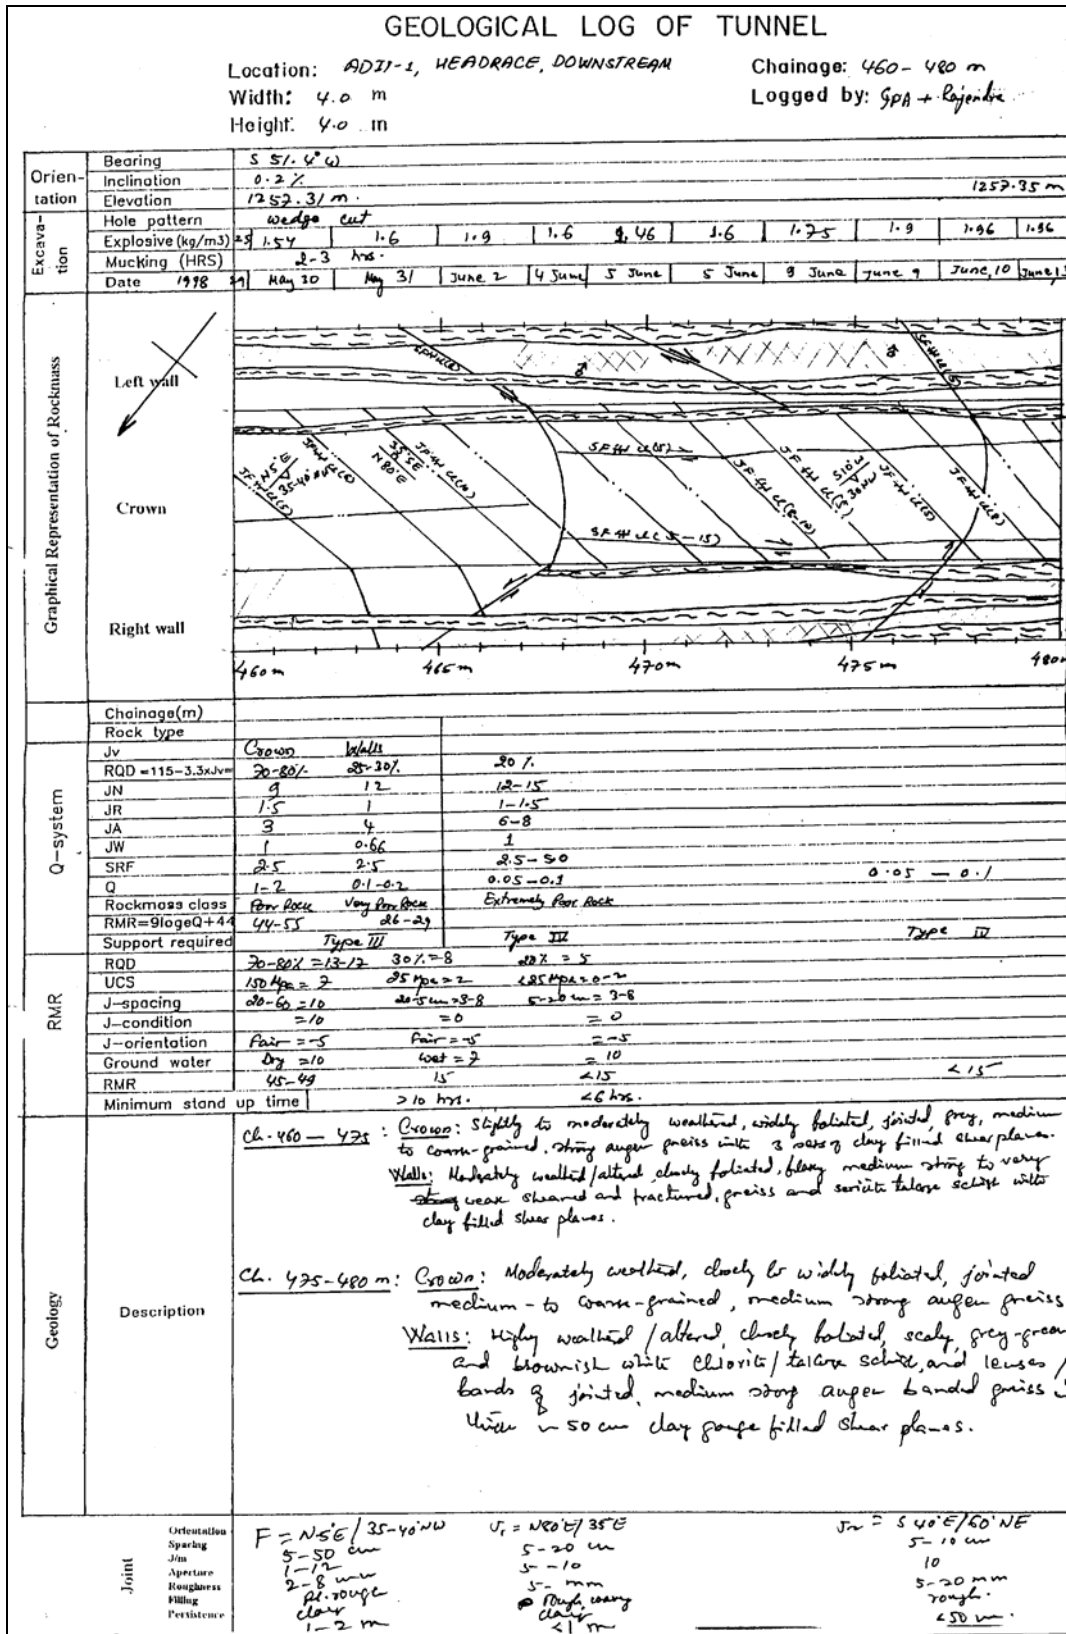 GEOLOGICAL LOG OF TUNNEL
Location: ADIT-1, HEADRACE, DOWNSTREAM Chainage: 460-480 m
Width: 4.0 m Logged by: GPA + Rajendra
Height: 4.0 m
Orien-tation
Bearing S 51.4° W
Inclination 0.2 %
Elevation 1257.31 m. 1257.35 m
Excava-tion
Hole pattern wedge cut
Explosive (kg/m3) 28 1.54 1.6 1.9 1.6 1.6 1.75 1.9 1.96 1.96
Mucking (HRS) 2-3 hrs.
Date 1998 29 May 30 May 31 June 2 4 June 5 June 5 June 9 June June 9 June, 10
Graphical Representation of Rockmass
Left wall
Crown
Right wall
N5°E
35-40°NW
35°SE
N80°E
S10°W
30NW
460m 465m 470m 475m 480m
Chainage(m)
Rock type
Q-system
Jv Crown Walls
RQD =115-3.3xJv= 70-80% 25-30% 20 %
JN 9 12 12-15
JR 1.5 1 1-1.5
JA 3 4 6-8
JW 1 0.66 1
SRF 2.5 2.5 2.5-5.0
Q 1-2 0.1-0.2 0.05-0.1 0.05 - 0.1
Rockmass class Poor Rock Very Poor Rock Extremely Poor Rock
RMR=9logeQ+44 44-55 26-29
Support required Type III Type IV Type IV
RMR
RQD 70-80% =13-17 30% =8 20% = 5
UCS 150 Mpa = 7 25 Mpa = 2 <25 Mpa = 0-2
J-spacing 20-60 =10 20-5 cm =3-8 5-20 cm = 3-8
J-condition =10 =0 = 0
J-orientation Fair = -5 Fair = -5 = -5
Ground water Dry =10 wet = 7 = 10
RMR 45-49 15 <15 <15
Minimum stand up time >10 hrs. <6 hrs.
Geology
Description
Ch. 460 - 475 : Crown: Slightly to moderately weathered, widely foliated, jointed, grey, medium
to coarse-grained, strong augen gneiss with 3 sets of clay filled shear planes.
Walls: Moderately weathered/altered, closely foliated, medium strong to very
weak sheared and fractured, gneiss and sericite talcose schist with
clay filled shear planes.
Ch. 475-480 m: Crown: Moderately weathered, closely to widely foliated, jointed
medium-to coarse-grained, medium strong augen gneiss
Walls: Highly weathered/altered, closely foliated, scaly, grey-green
and brownish white chlorite/talcose schist, and lenses/
bands of jointed, medium strong augen banded gneiss
50 cm clay gouge filled shear planes.
Joint
Orientation F = N5°E/35-40°NW J1 = N80°E/35E J2 = S40°E/60°NE
Spacing 5-50 cm 5-20 cm 5-10 cm
J/m 1-12 5-10 10
Aperture 2-8 mm 5- mm 5-20 mm
Roughness pl. rough rough, wavy rough.
Filling clay clay
Persistence 1-2 m <1 m <50 m.